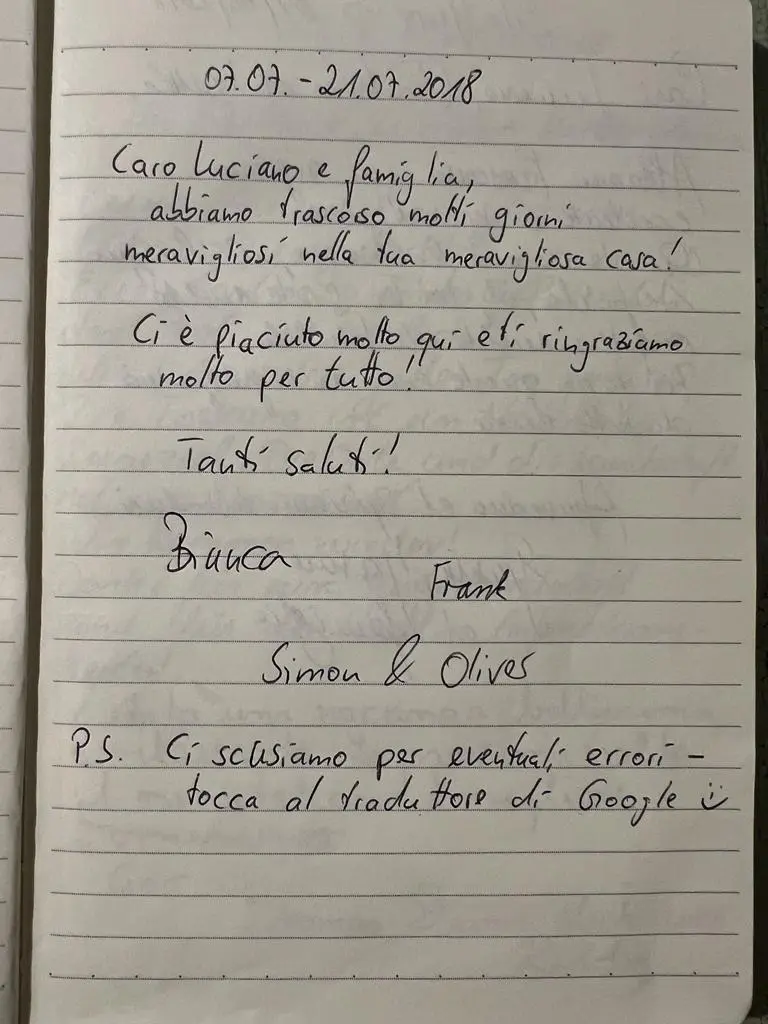 07.07. - 21.07.2018
Caro Luciano e famiglia,
abbiamo trascorso molti giorni
meravigliosi nella tua meravigliosa casa!
Ci è piaciuto molto qui e ti ringraziamo
molto per tutto!
Tanti saluti!
Bianca
Frank
Simon & Oliver
P.S. Ci scusiamo per eventuali errori -
tocca al traduttore di Google ü